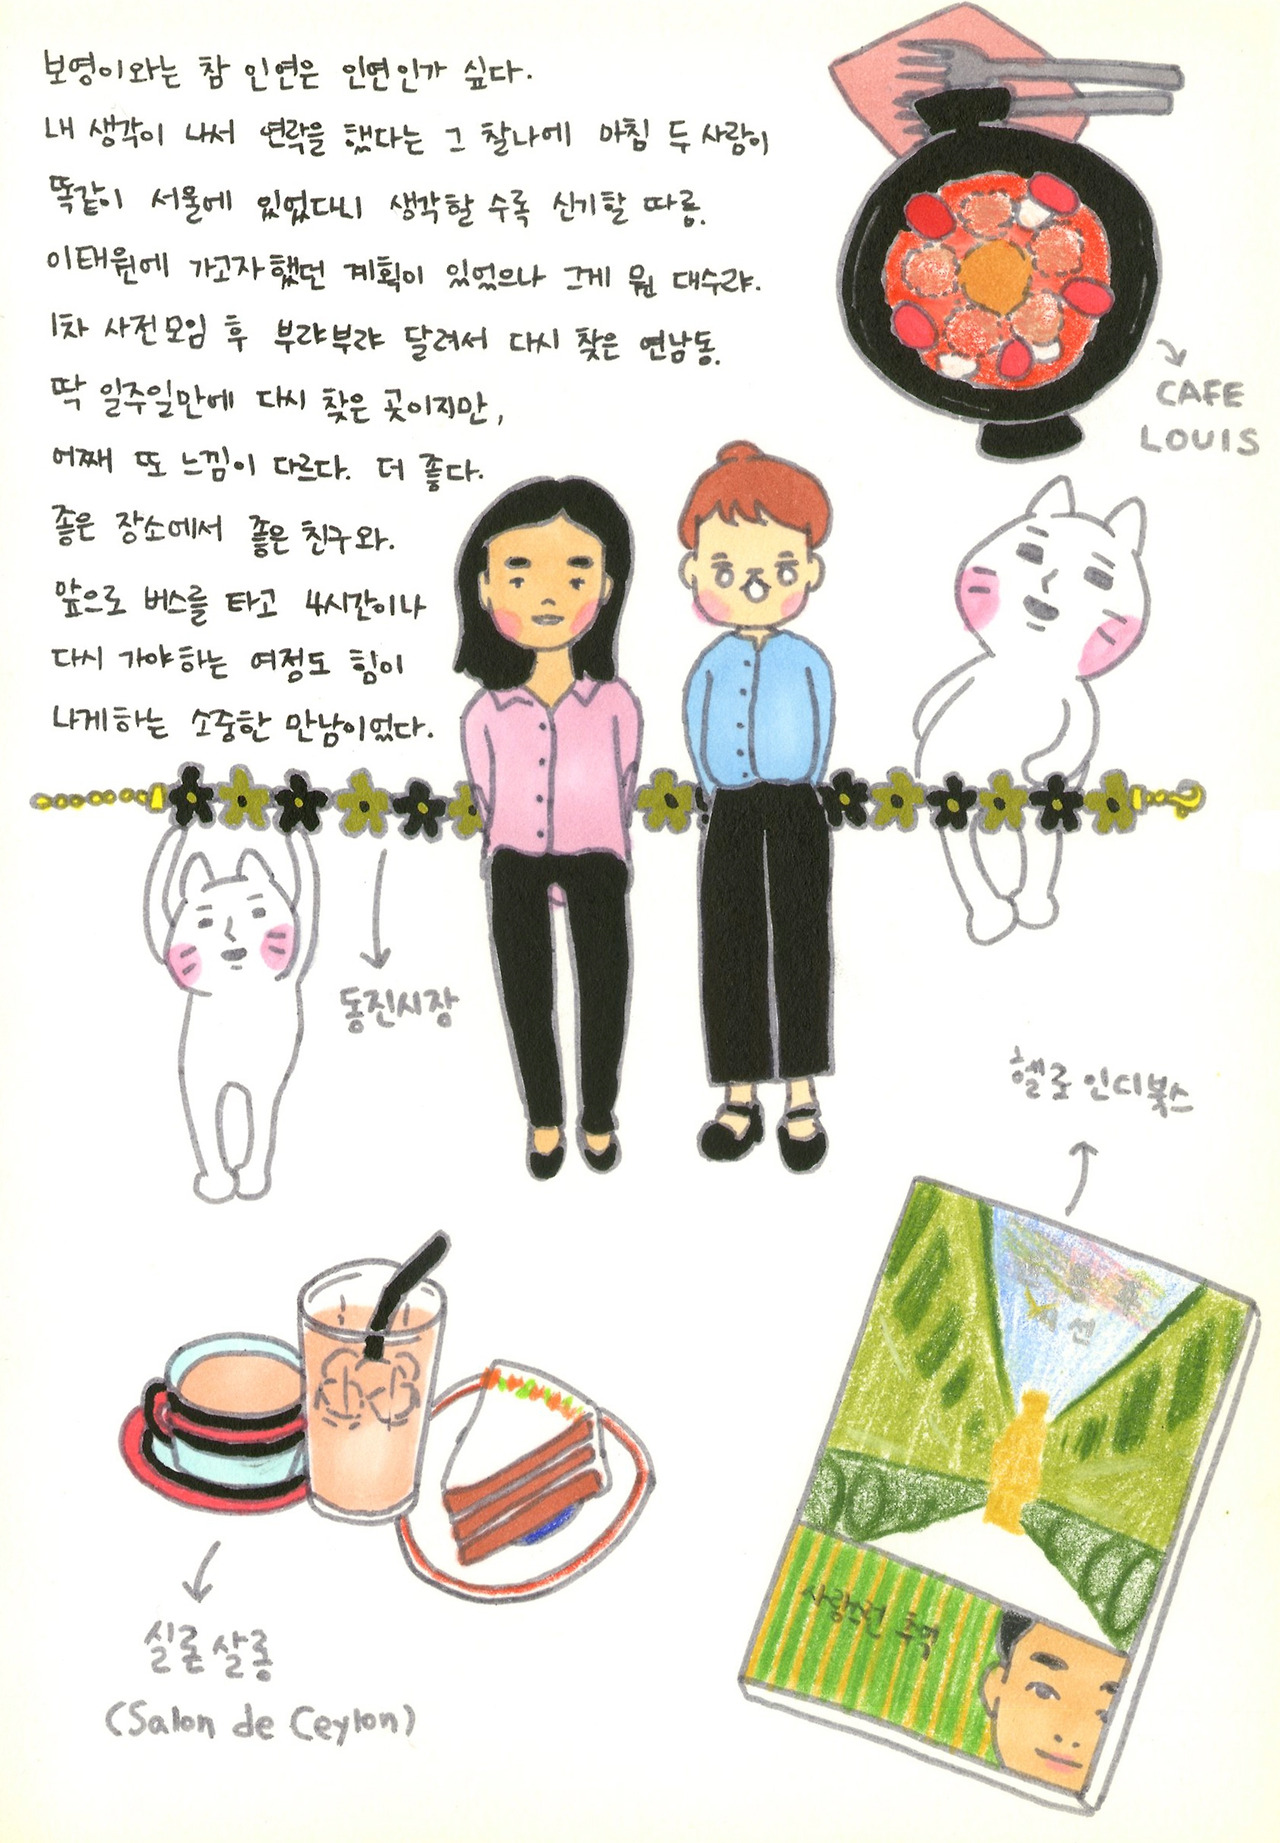 보영이와는 참 인연은 인연인가 싶다.
내 생각이 나서 연락을 했다는 그 찰나에 마침 두 사람이
똑같이 서울에 있었다니 생각할 수록 신기할 따름.
이태원에 가고자 했던 계획이 있었으나 그게 뭔 대수랴.
1차 사전모임 후 부랴부랴 달려서 다시 찾은 연남동.
딱 일주일만에 다시 찾은 곳이지만,
어째 또 느낌이 다르다. 더 좋다.
좋은 장소에서 좋은 친구와.
앞으로 버스를 타고 4시간이나
다시 가야하는 여정도 힘이
나게하는 소중한 만남이었다.
CAFE
LOUIS
동진시장
헬로인디북스
선
사랑스런 추억
실론살롱
(Salon de Ceylon)